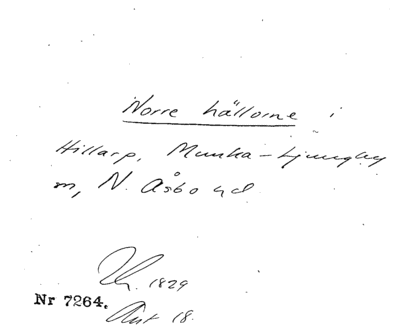 Norre hällorne i
Hillarp, Munka-Ljungby
m, N. Åsbo hd
1829
Nr 7264.
18.